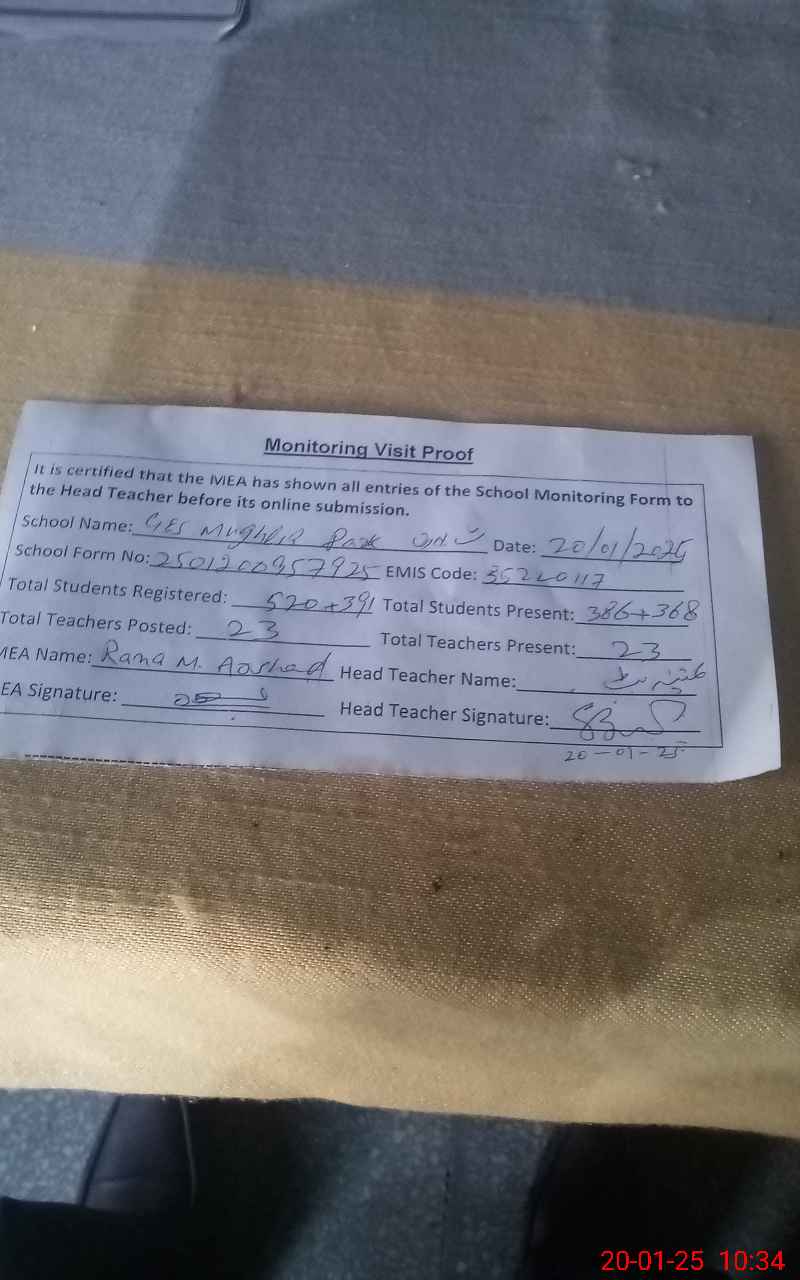 Monitoring Visit Proof
It is certified that the MEA has shown all entries of the School Monitoring Form to
the Head Teacher before its online submission.
School Name: GES Date: 20/01/2025
School Form No: 2501200957925 EMIS Code: 35220117
Total Students Registered: 520+391 Total Students Present: 386+368
Total Teachers Posted: 23 Total Teachers Present: 23
MEA Name: Rana M. Aarshad Head Teacher Name:
EA Signature: Head Teacher Signature:
20-01-25
20-01-25 10:34